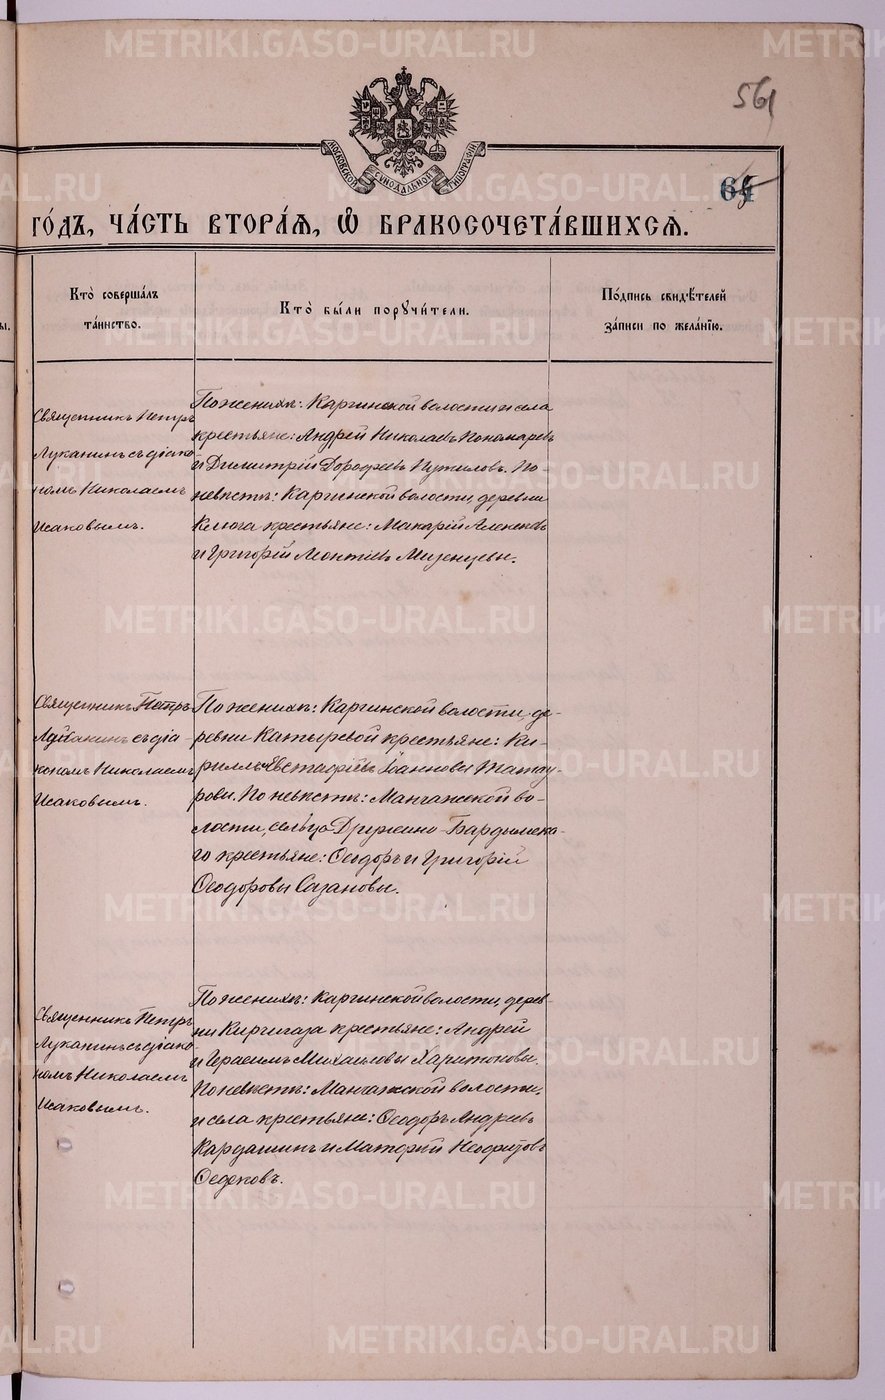 561
МОСКОВСКОЙ СѴНОДАЛЬНОЙ ТИПОГРАФІИ
ГО́ДЪ, ЧА́СТЬ ВТОРА́Ѧ, Ѽ БРАКОСОЧЕТА́ВШИХСѦ.
Кто̀ соверша́лъ
та́инство.
Кто̀ бы́ли порꙋчи́тели.
По́дпись свидѣ́телей
за́писи по жела́нїю.
Священникъ Петръ
Луканинъ съ діако-
номъ Николаемъ
Исаковымъ.
По женихѣ: Каргинской волости и села
крестьяне: Андрей Николаевъ Пономаревъ
и Димитрій Дорофеевъ Путиловъ. По
невѣстѣ: Каргинской волости, деревни
крестьяне: Макарій
и Григорій Леонтіевъ Мизенцевы.
Священникъ Петръ
Луканинъ съ діа-
кономъ Николаемъ
Исаковымъ.
По женихѣ: Каргинской волости, де-
ревни Катыревой крестьяне: Ки-
риллъ и Евстафій Іоанновы Татау-
ровы. По невѣстѣ: Манчажской во-
лости, сельца Дружино-Бардымска-
го крестьяне: Ѳеодоръ и Григорій
Ѳеодоровы Сазановы.
Священникъ Петръ
Луканинъ съ діако-
номъ Николаемъ
Исаковымъ.
По женихѣ: Каргинской волости, дерев-
ни Киргигаза крестьяне: Андрей
и Герасимъ Михаиловы Харитоновы.
По невѣстѣ: Манчажской волости,
и села крестьяне: Ѳеодоръ Андреевъ
Кардашинъ и
METRIKI.GASO-URAL.RU